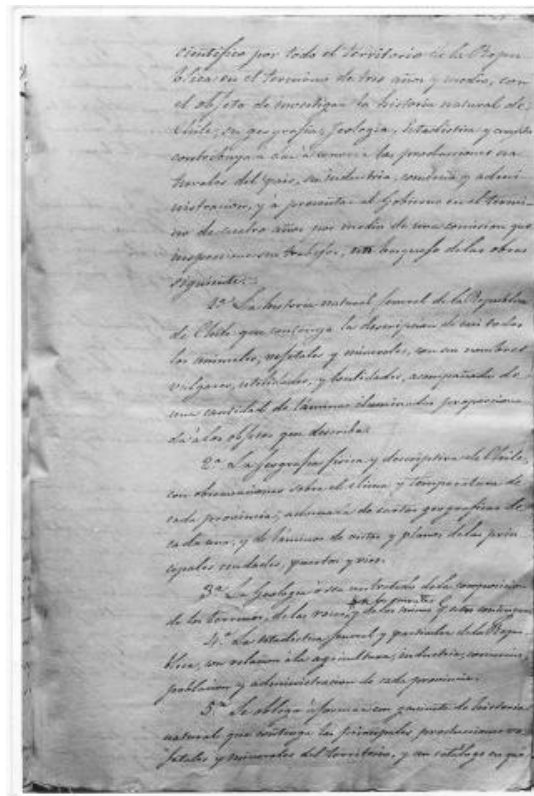 cientifico por todo el territorio de la Repu
blica, en el termino de tres años y medio, con
el objeto de investigar la historia natural de
Chile, su geografia, Jeologia, Estadistica y cuanto
contribuya a dar a conocer las producciones na
turales del pais, su industria, comercio y admi
nistracion, y a presentar al Gobierno en el termi-
no de cuatro años por medio de una comision que
inspeccione sus trabajos, un bosquejo de las obras
siguientes.
1º La historia natural jeneral de la Republica
de Chile que contenga la descripcion de casi todos
los animales, vejetales y minerales, con sus nombres
vulgares, utilidades, y localidades, acompañada de
una cantidad de láminas iluminadas proporciona
da a los objetos que describa.
2º La jeografia fisica y descriptiva de Chile,
con observaciones sobre el clima y temperatura de
cada provincia, adornada de cartas geograficas de
cada una, y de láminas de vistas y planos de las prin
cipales ciudades, puertos y rios.
3º La Jeologia o sea un tratado de la composicion
de los terrenos, de las rocas, y de las minas
4º La estadistica jeneral y particular de la Repu
blica, con relacion a la agricultura, industria, comercio,
poblacion y administracion de cada provincia.
5º Se obliga a formar un gavinete de historia
natural que contenga las principales producciones ve
jetales y minerales del territorio, y un catálogo en que